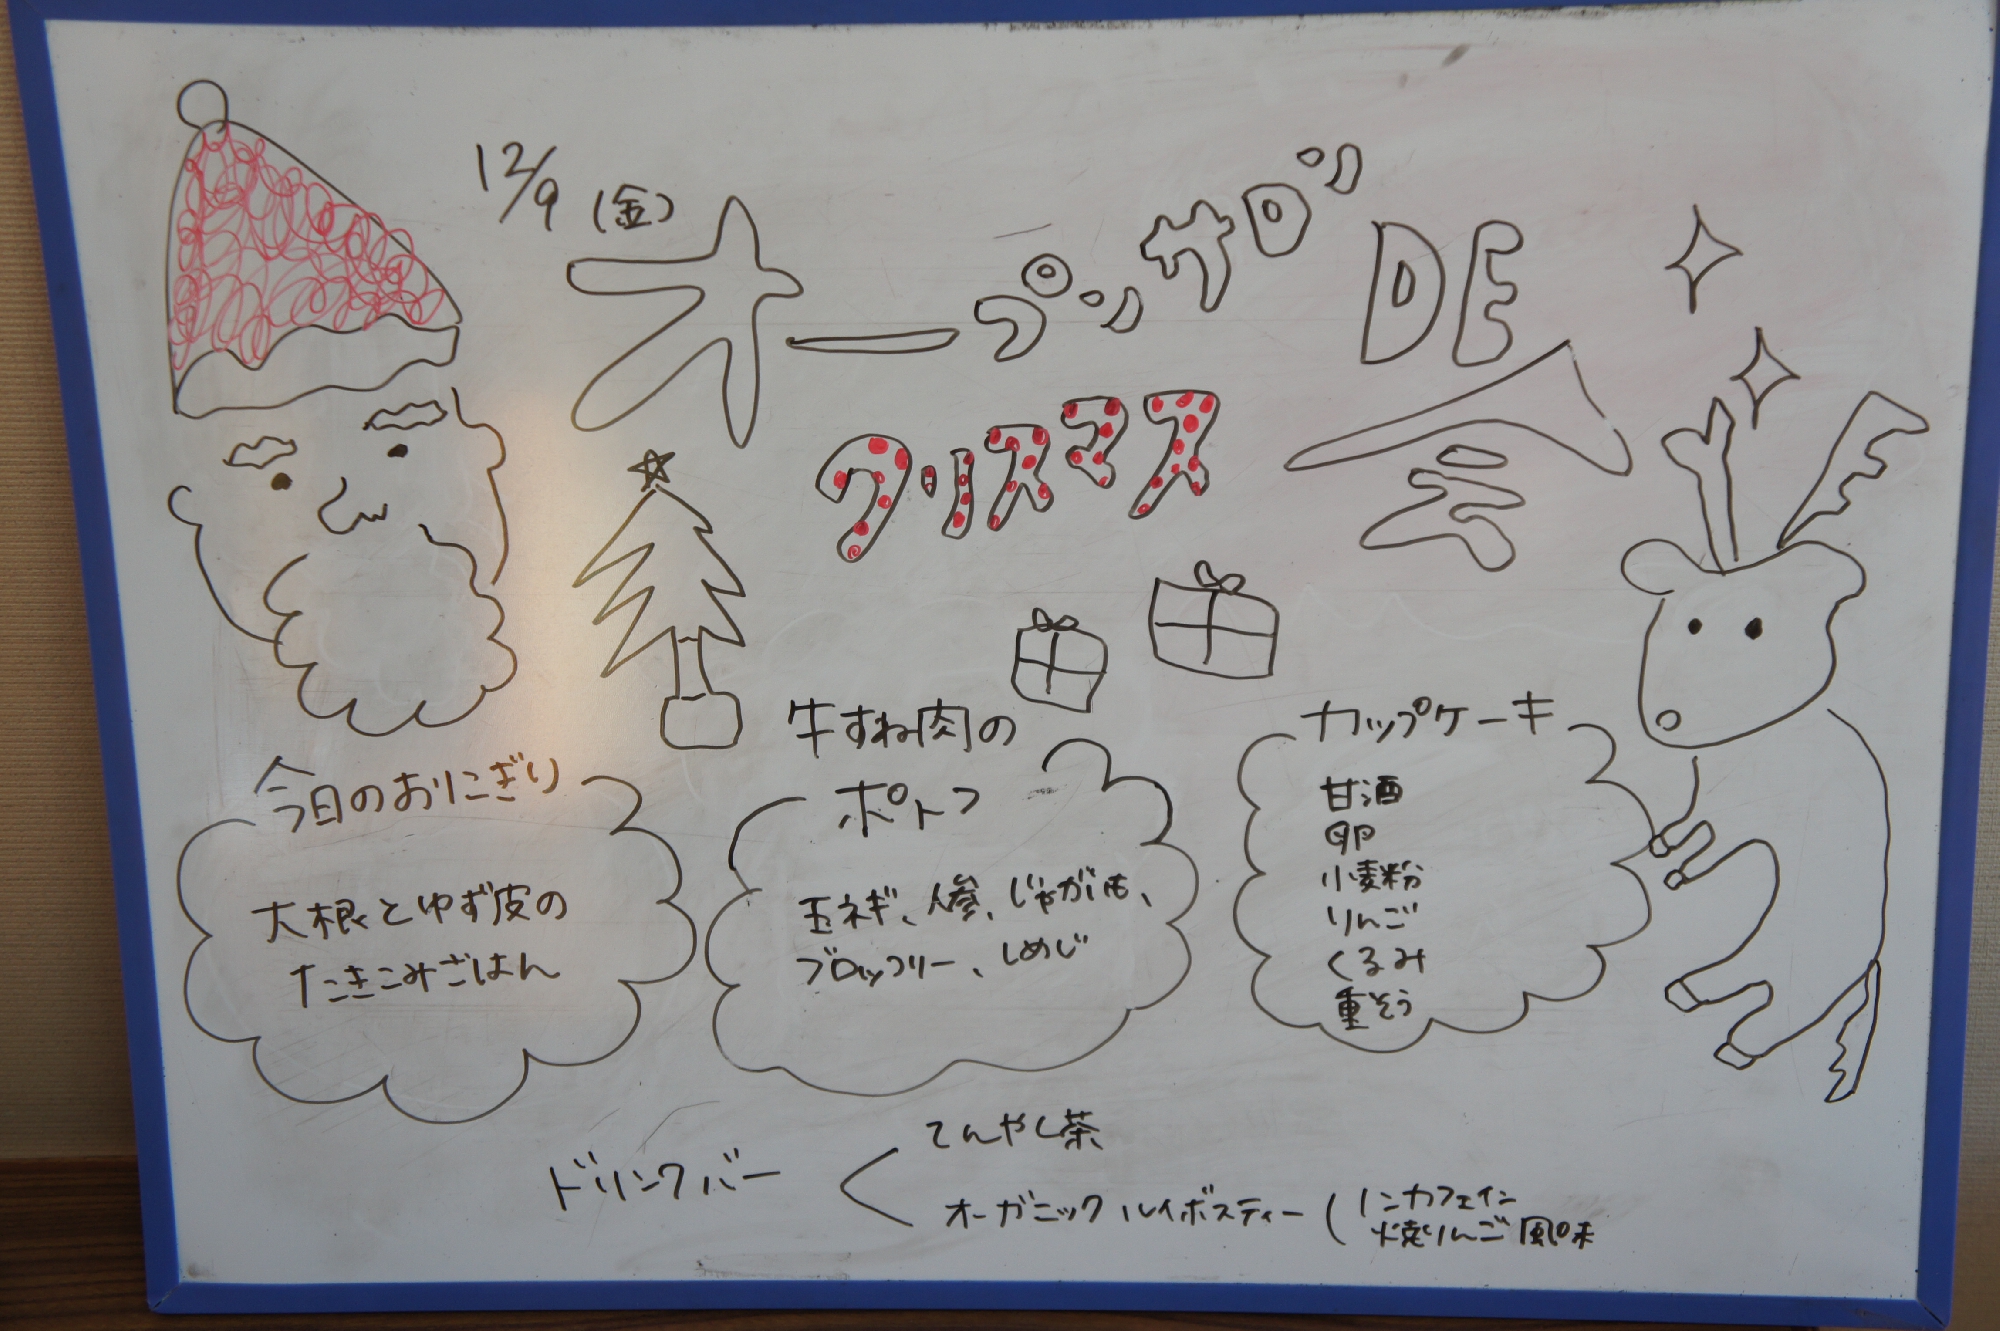 12/9(金)
オープンサロンDE
クリスマス会
今日のおにぎり
大根とゆず皮の
たきこみごはん
牛すね肉の
ポトフ
玉ネギ、人参、じゃがいも、
ブロッコリー、しめじ
カップケーキ
甘酒
卵
小麦粉
りんご
くるみ
重そう
ドリンクバー
てんやし茶
オーガニックルイボスティー(ノンカフェイン
焼りんご風味